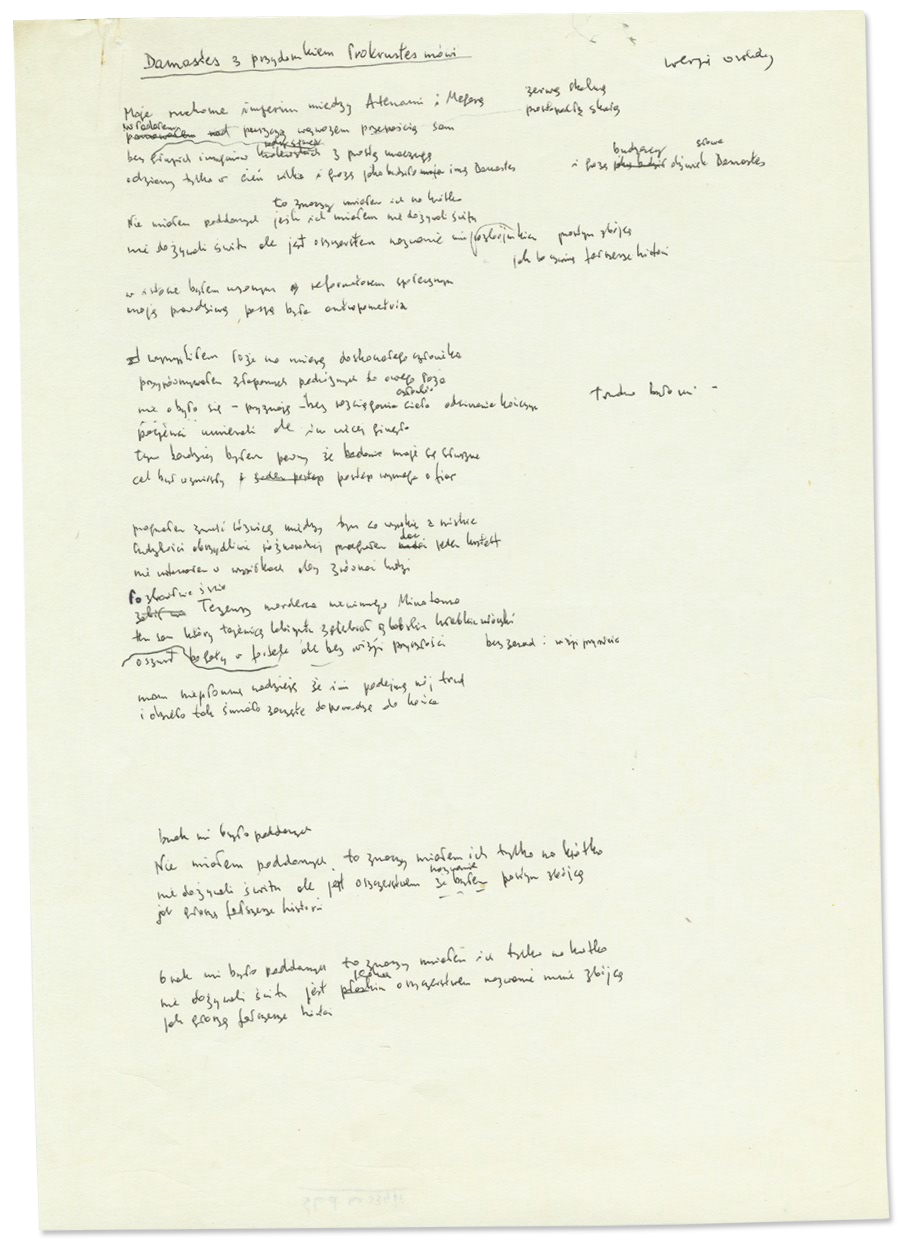 Damastes z przydomkiem Prokrustes mówi
Moje ruchome imperium między Atenami i Megarą
władałem
panowałem nad puszczą wąwozem przepaścią sam
bez
odziany tylko w cień wilka i grozę imię Damastes
i grozę budzący dźwięk słowa Damastes
to znaczy miałem ich na krótko
Nie miałem poddanych jeśli ich miałem nie dożywali świtu
nie dożywali świtu ale jest oszczerstwem nazwanie mnie rozbójnikiem
prostym zbójcą
jak to głoszą fałszerze historii
w istocie byłem uczonym reformatorem społecznym
moją prawdziwą pasją była antropometria
wymyśliłem łoże na miarę doskonałego człowieka
przyrównywałem złapanych podróżnych do owego łoża
nie obyło się – przyznaję – bez rozciągania ciała obcinania kończyn
trudno było mi –
pacjenci umierali ale im więcej ginęło
tym bardziej byłem pewny że badania moje są słuszne
cel był wzniosły postęp wymaga ofiar
pragnąłem znieść różnicę między tym co wysokie a niskie
ludzkości obrzydliwie różnorodnej pragnąłem dać jeden kształt
nie ustawałem w wysiłkach aby zrównać ludzi
Pozbawił życia
zabił mnie Tezeusz morderca niewinnego Minotaura
ten sam który tajemnicę labiryntu zgłębiał z kłębkiem włóczki
oszust bez wizji przyszłości
bez zasad i wizji przyszłości
mam niepłonną nadzieję że inni podejmą mój trud
i dzieło tak śmiało zaczęte doprowadzą do końca
brak mi było poddanych
Nie miałem poddanych to znaczy miałem ich tylko na krótko
nazwanie
nie dożywali świtu ale jest oszczerstwem że byłem prostym zbójcą
jak głoszą fałszerze historii
brak mi było poddanych to znaczy miałem ich tylko na krótko
nie dożywali świtu jest oszczerstwem nazwanie mnie zbójcą
jak głoszą fałszerze historii